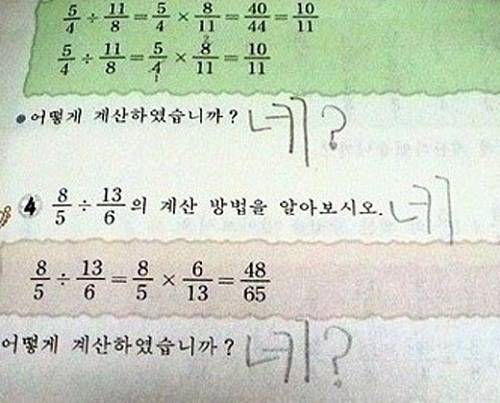 5/4 ÷ 11/8 = 5/4 × 8/11 = 40/44 = 10/11
5/4 ÷ 11/8 = 5/4 × 8/11 = 10/11
• 어떻게 계산하였습니까? 네?
4 8/5 ÷ 13/6의 계산 방법을 알아보시오. 네
8/5 ÷ 13/6 = 8/5 × 6/13 = 48/65
어떻게 계산하였습니까? 네?